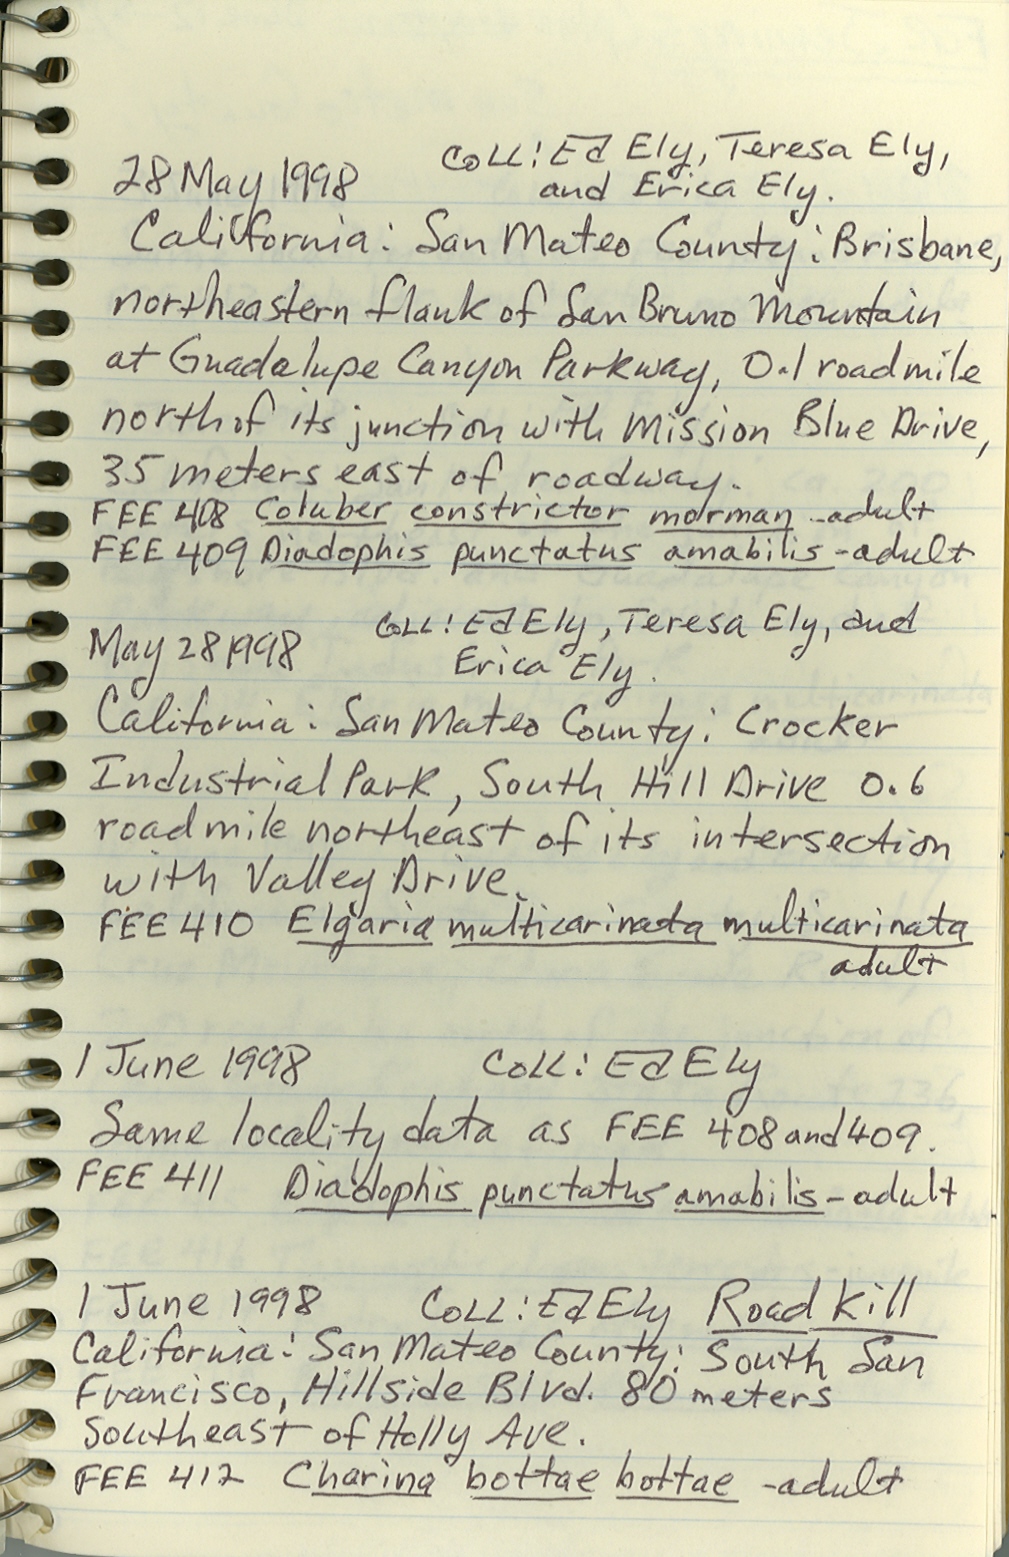 28 May 1998 Coll: Ed Ely, Teresa Ely,
and Erica Ely.
California: San Mateo County: Brisbane,
northeastern flank of San Bruno Mountain
at Guadalupe Canyon Parkway, 0.1 roadmile
north of its junction with Mission Blue Drive,
35 meters east of roadway.
FEE 408 Coluber constrictor morman -adult
FEE 409 Diadophis punctatus amabilis -adult
May 28 1998 Coll: Ed Ely, Teresa Ely, and
Erica Ely.
California: San Mateo County: Crocker
Industrial Park, South Hill Drive 0.6
roadmile northeast of its intersection
with Valley Drive.
FEE 410 Elgaria multicarinata multicarinata
adult
1 June 1998 Coll: Ed Ely
Same locality data as FEE 408 and 409.
FEE 411 Diadophis punctatus amabilis - adult
1 June 1998 Coll: Ed Ely Road Kill
California: San Mateo County: South San
Francisco, Hillside Blvd. 80 meters
Southeast of Holly Ave.
FEE 412 Charina bottae bottae -adult